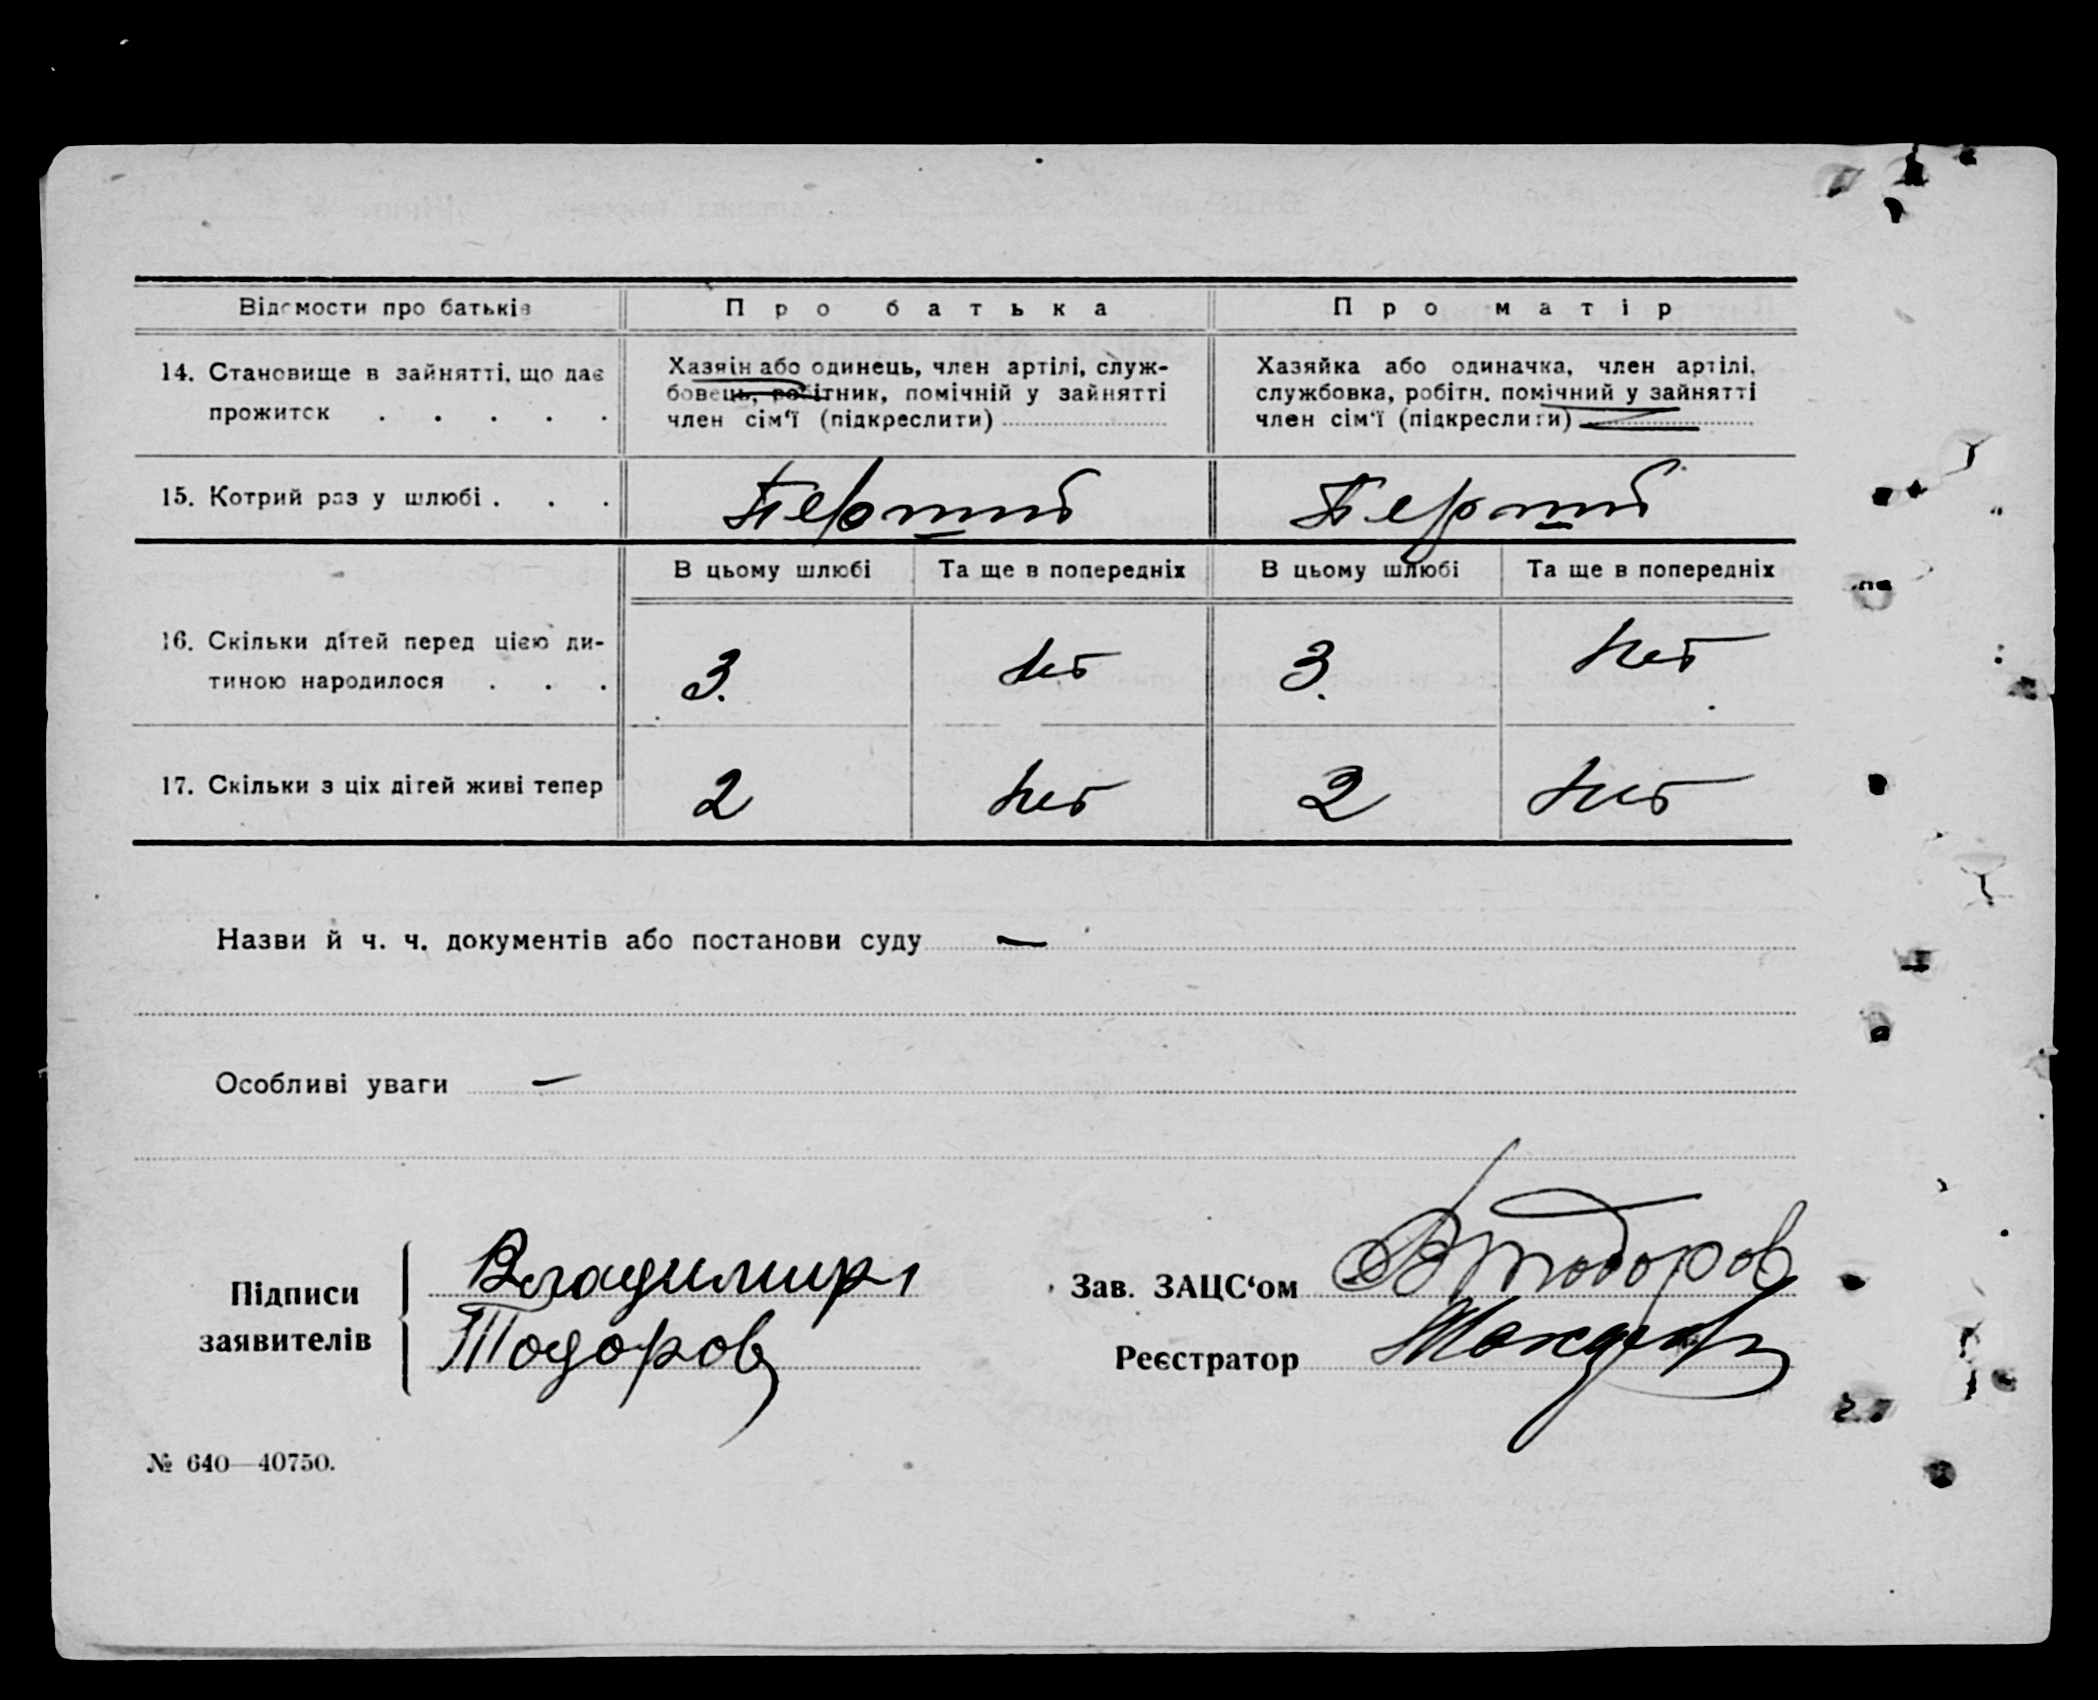 Відомости про батьків Про батька Про матір
14. Становище в зайнятті, що дає прожиток . . . . .
Хазяїн або одинець, член артілі, служ-
бовець, робітник, помічній у зайнятті
член сім‘ї (підкреслити)
Хазяйка або одиначка, член артілі,
службовка, робітн. помічний у зайнятті
член сім‘ї (підкреслити)
15. Котрий раз у шлюбі . . . Перший Перший
В цьому шлюбі Та ще в попередніх В цьому шлюбі Та ще в попередніх
16. Скільки дітей перед цією ди-
тиною народилося . . . 3. нет 3. нет
17. Скільки з ціх дітей живі тепер 2 нет 2 нет
Назви й ч. ч. документів або постанови суду —
Особливі уваги —
Підписи
заявителів
Владимир
Тодоров
Зав. ЗАЦС‘ом ВТодоров
Реєстратор
№ 640—40750.